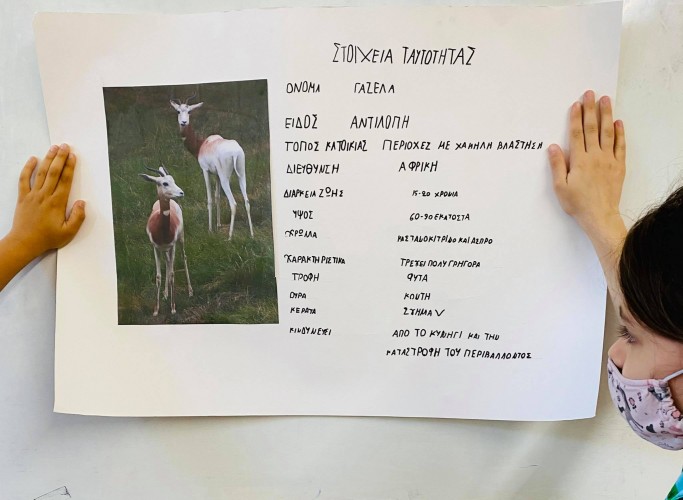 ΣΤΟΙΧΕΙΑ ΤΑΥΤΟΤΗΤΑΣ
ΟΝΟΜΑ ΓΑΖΕΛΑ
ΕΙΔΟΣ ΑΝΤΙΛΟΠΗ
ΤΟΠΟΣ ΚΑΤΟΙΚΙΑΣ ΠΕΡΙΟΧΕΣ ΜΕ ΧΑΜΗΛΗ ΒΛΑΣΤΗΣΗ
ΔΙΕΥΘΗΝΣΗ ΑΦΡΙΚΗ
ΔΙΑΡΚΕΙΑ ΖΩΗΣ 15-20 ΧΡΟΝΙΑ
ΥΨΟΣ 60-90 ΕΚΑΤΟΣΤΑ
ΧΡΩΜΑ ΚΑΣΤΑΝΟΚΙΤΡΙΝΟ ΚΑΙ ΑΣΠΡΟ
ΧΑΡΑΚΤΗΡΙΣΤΙΚΑ ΤΡΕΧΕΙ ΠΟΛΥ ΓΡΗΓΟΡΑ
ΤΡΟΦΗ ΦΥΤΑ
ΟΥΡΑ ΚΟΝΤΗ
ΚΕΡΑΤΑ ΣΧΗΜΑ V
ΚΙΝΔΥΝΕΥΕΙ ΑΠΟ ΤΟ ΚΥΝΗΓΙ ΚΑΙ ΤΗΝ
ΚΑΤΑΣΤΡΟΦΗ ΤΟΥ ΠΕΡΙΒΑΛΛΟΝΤΟΣ